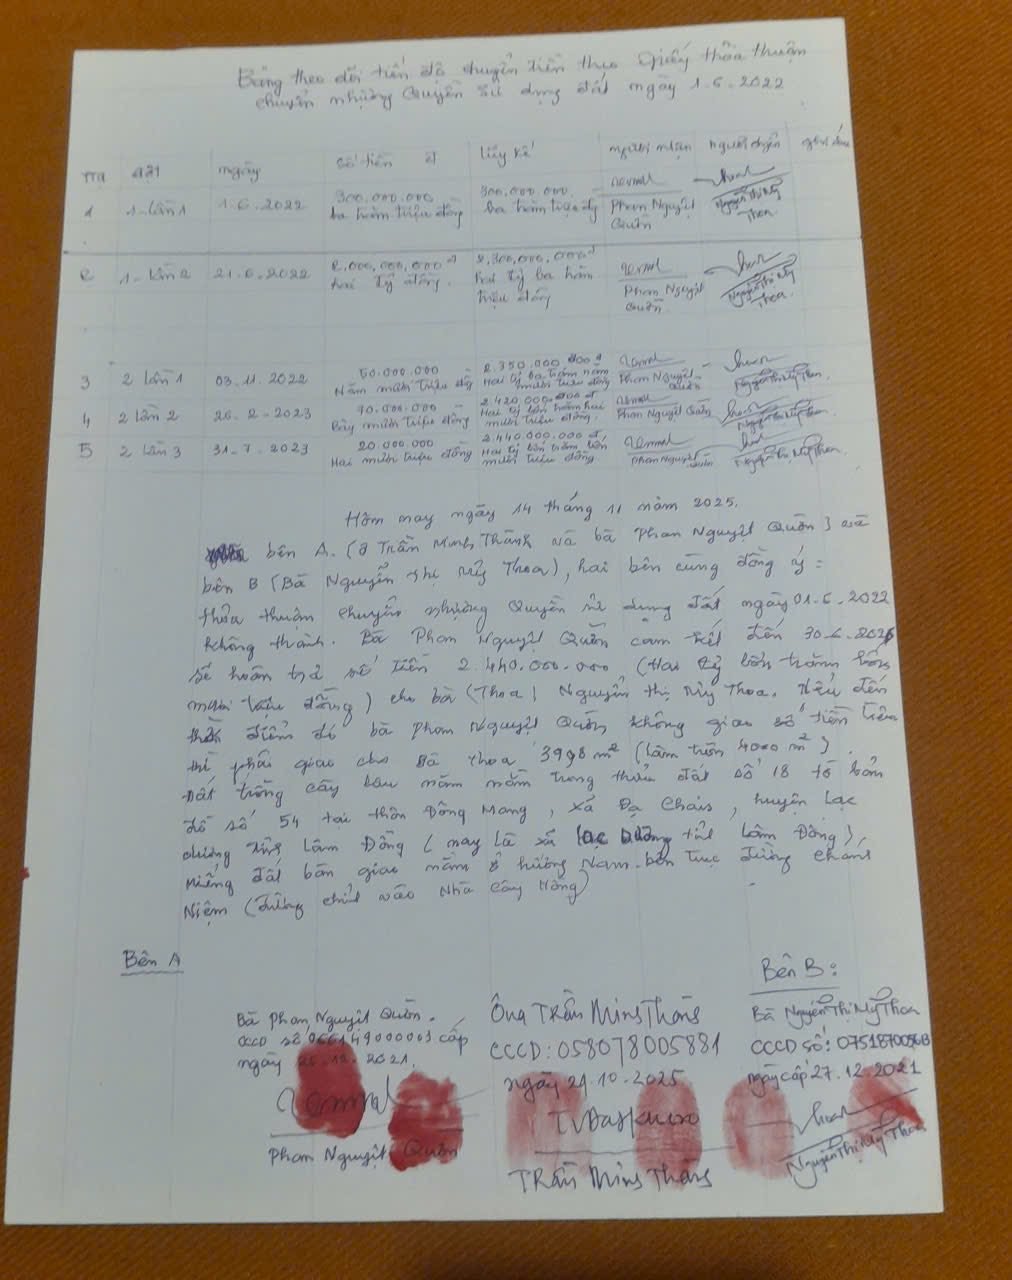 Bảng theo dõi tiến độ chuyển tiền theo Giấy thỏa thuận
chuyển nhượng Quyền sử dụng đất ngày 1.6.2022
đợt ngày số tiền đ lũy kế người nhận người chuyển ghi chú
1 1-lần 1 1.6.2022 300.000.000 300.000.000
ba trăm triệu đồng ba trăm triệu đg Phan Nguyệt Quờn Nguyễn Thị Mỹ Thoa
2 1-lần 2 21.6.2022 2.000,000,000 đ 2,300,000,000 đ
hai tỷ đồng. hai tỷ ba trăm triệu đồng Phan Nguyệt Quờn Nguyễn Thị Mỹ Thoa.
3 2 lần 1 03.11.2022 50.000.000 2.350.000.000 đ
Năm mươi triệu đg Hai tỷ ba trăm năm mươi triệu đồng Phan Nguyệt Quờn Nguyễn Thị Mỹ Thoa.
4 2 lần 2 26.2.2023 70.000.000 2.420.000.000 đ
Bảy mươi triệu đồng Hai tỷ bốn trăm hai mươi triệu đồng. Phan Nguyệt Quờn Nguyễn Thị Mỹ Thoa.
5 2 lần 3 31.7.2023 20.000.000 2.440.000.000 đ
Hai mươi triệu đồng Hai tỷ bốn trăm bốn mươi triệu đồng. Phan Nguyệt Quờn Nguyễn Thị Mỹ Thoa.
Hôm nay ngày 14 tháng 11 năm 2025.
bên A. (ô Trần Minh Thành và bà Phan Nguyệt Quờn) và
bên B (Bà Nguyễn thị Mỹ Thoa), hai bên cùng đồng ý:
thỏa thuận chuyển nhượng Quyền sử dụng đất ngày 01.6.2022
không thành. Bà Phan Nguyệt Quờn cam kết đến 30.6.2026
sẽ hoàn trả số tiền 2.440.000.000 (Hai tỷ bốn trăm bốn
mươi triệu đồng) cho bà (Thoa) Nguyễn thị Mỹ Thoa. Nếu đến
thời điểm đó bà Phan Nguyệt Quờn không giao số tiền trên
thì phải giao cho Bà Thoa 3998 m² (làm tròn 4000 m²)
Đất trồng cây lâu năm nằm trong thửa đất số 18 tờ bản
đồ số 54 tại thôn Đông Mang, xã Đạ Chais, huyện Lạc
dương tỉnh Lâm Đồng (nay là xã lạc Dương tỉnh Lâm Đồng),
miếng đất bàn giao nằm ở hướng Nam bên trục đường chánh
Niệm (đường chính vào Nhà cây Hồng)
Bên A
Bên B:
Bà Phan Nguyệt Quờn.
CCCD số 066149000003 cấp
ngày 2021.
Phan Nguyệt Quờn
Ông TRẦN Minh Thành
CCCD: 058078005881
ngày 21.10.2025
TRẦN Minh Thành
Bà Nguyễn Thị Mỹ Thoa
CCCD số:
ngày cấp 27.12.2021
Nguyễn Thị Mỹ Thoa